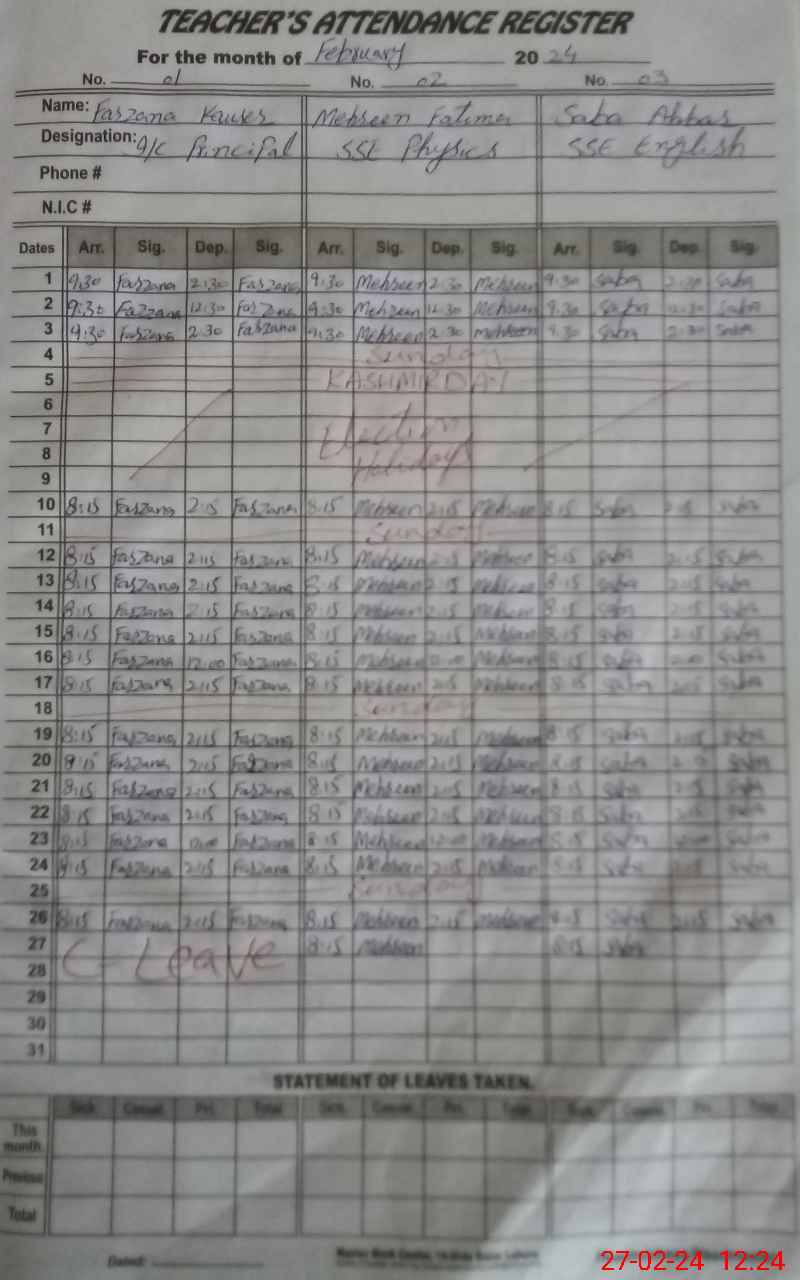 TEACHER'S ATTENDANCE REGISTER
For the month of February 20 24
No. 01 No. 02 No. 03
Name: Farzana Kauser Mehreen Fatima Saba Abbas
Designation: I/C Principal SSE Physics SSE English
Phone #
N.I.C #
Dates Arr. Sig. Dep. Sig. Arr. Sig. Dep. Sig. Arr. Sig. Dep. Sig.
1 9:30 Farzana 2:30 Farzana 9:30 Mehreen 2:30 Mehreen 9:30 Saba 2:30 Saba
2 9:30 Farzana 12:30 Farzana 9:30 Mehreen 12:30 Mehreen 9:30 Saba 12:30 Saba
3 9:30 Farzana 2:30 Farzana 9:30 Mehreen 2:30 Mehreen 9:30 Saba 2:30 Saba
4 Sunday
5 KASHMIR DAY
6
7 Election
8 Holidays
9
10 8:15 Farzana 2:15 Farzana 8:15 Mehreen 2:15 Mehreen 8:15 Saba 2:15 Saba
11 Sunday
12 8:15 Farzana 2:15 Farzana 8:15 Mehreen 2:15 Mehreen 8:15 Saba 2:15 Saba
13 8:15 Farzana 2:15 Farzana 8:15 Mehreen 2:15 Mehreen 8:15 Saba 2:15 Saba
14 8:15 Farzana 2:15 Farzana 8:15 Mehreen 2:15 Mehreen 8:15 Saba 2:15 Saba
15 8:15 Farzana 2:15 Farzana 8:15 Mehreen 2:15 Mehreen 8:15 Saba 2:15 Saba
16 8:15 Farzana 12:00 Farzana 8:15 Mehreen 12:00 Mehreen 8:15 Saba Saba
17 8:15 Farzana 2:15 Farzana 8:15 Mehreen 2:15 Mehreen 8:15 Saba 2:15 Saba
18 Sunday
19 8:15 Farzana 2:15 Farzana 8:15 Mehreen 2:15 Mehreen 8:15 Saba 2:15 Saba
20 8:15 Farzana 2:15 Farzana 8:15 Mehreen 2:15 Mehreen 8:15 Saba 2:15 Saba
21 8:15 Farzana 2:15 Farzana 8:15 Mehreen 2:15 Mehreen 8:15 Saba 2:15 Saba
22 8:15 Farzana 2:15 Farzana 8:15 Mehreen 2:15 Mehreen 8:15 Saba 2:15 Saba
23 8:15 Farzana 12:00 Farzana 8:15 Mehreen 12:00 Mehreen 8:15 Saba Saba
24 8:15 Farzana 2:15 Farzana 8:15 Mehreen 2:15 Mehreen 8:15 Saba 2:15 Saba
25 Sunday
26 8:15 Farzana 2:15 Farzana 8:15 Mehreen 2:15 Mehreen 8:15 Saba 2:15 Saba
27 C-Leave 8:15 Mehreen 8:15 Saba
28
29
30
31
STATEMENT OF LEAVES TAKEN.
Sick. Casual. Pri. Total Sick. Casual. Pri. Total. Sick. Casual. Pri. Total.
This month.
Previous
Total
Dated:
27-02-24 12:24